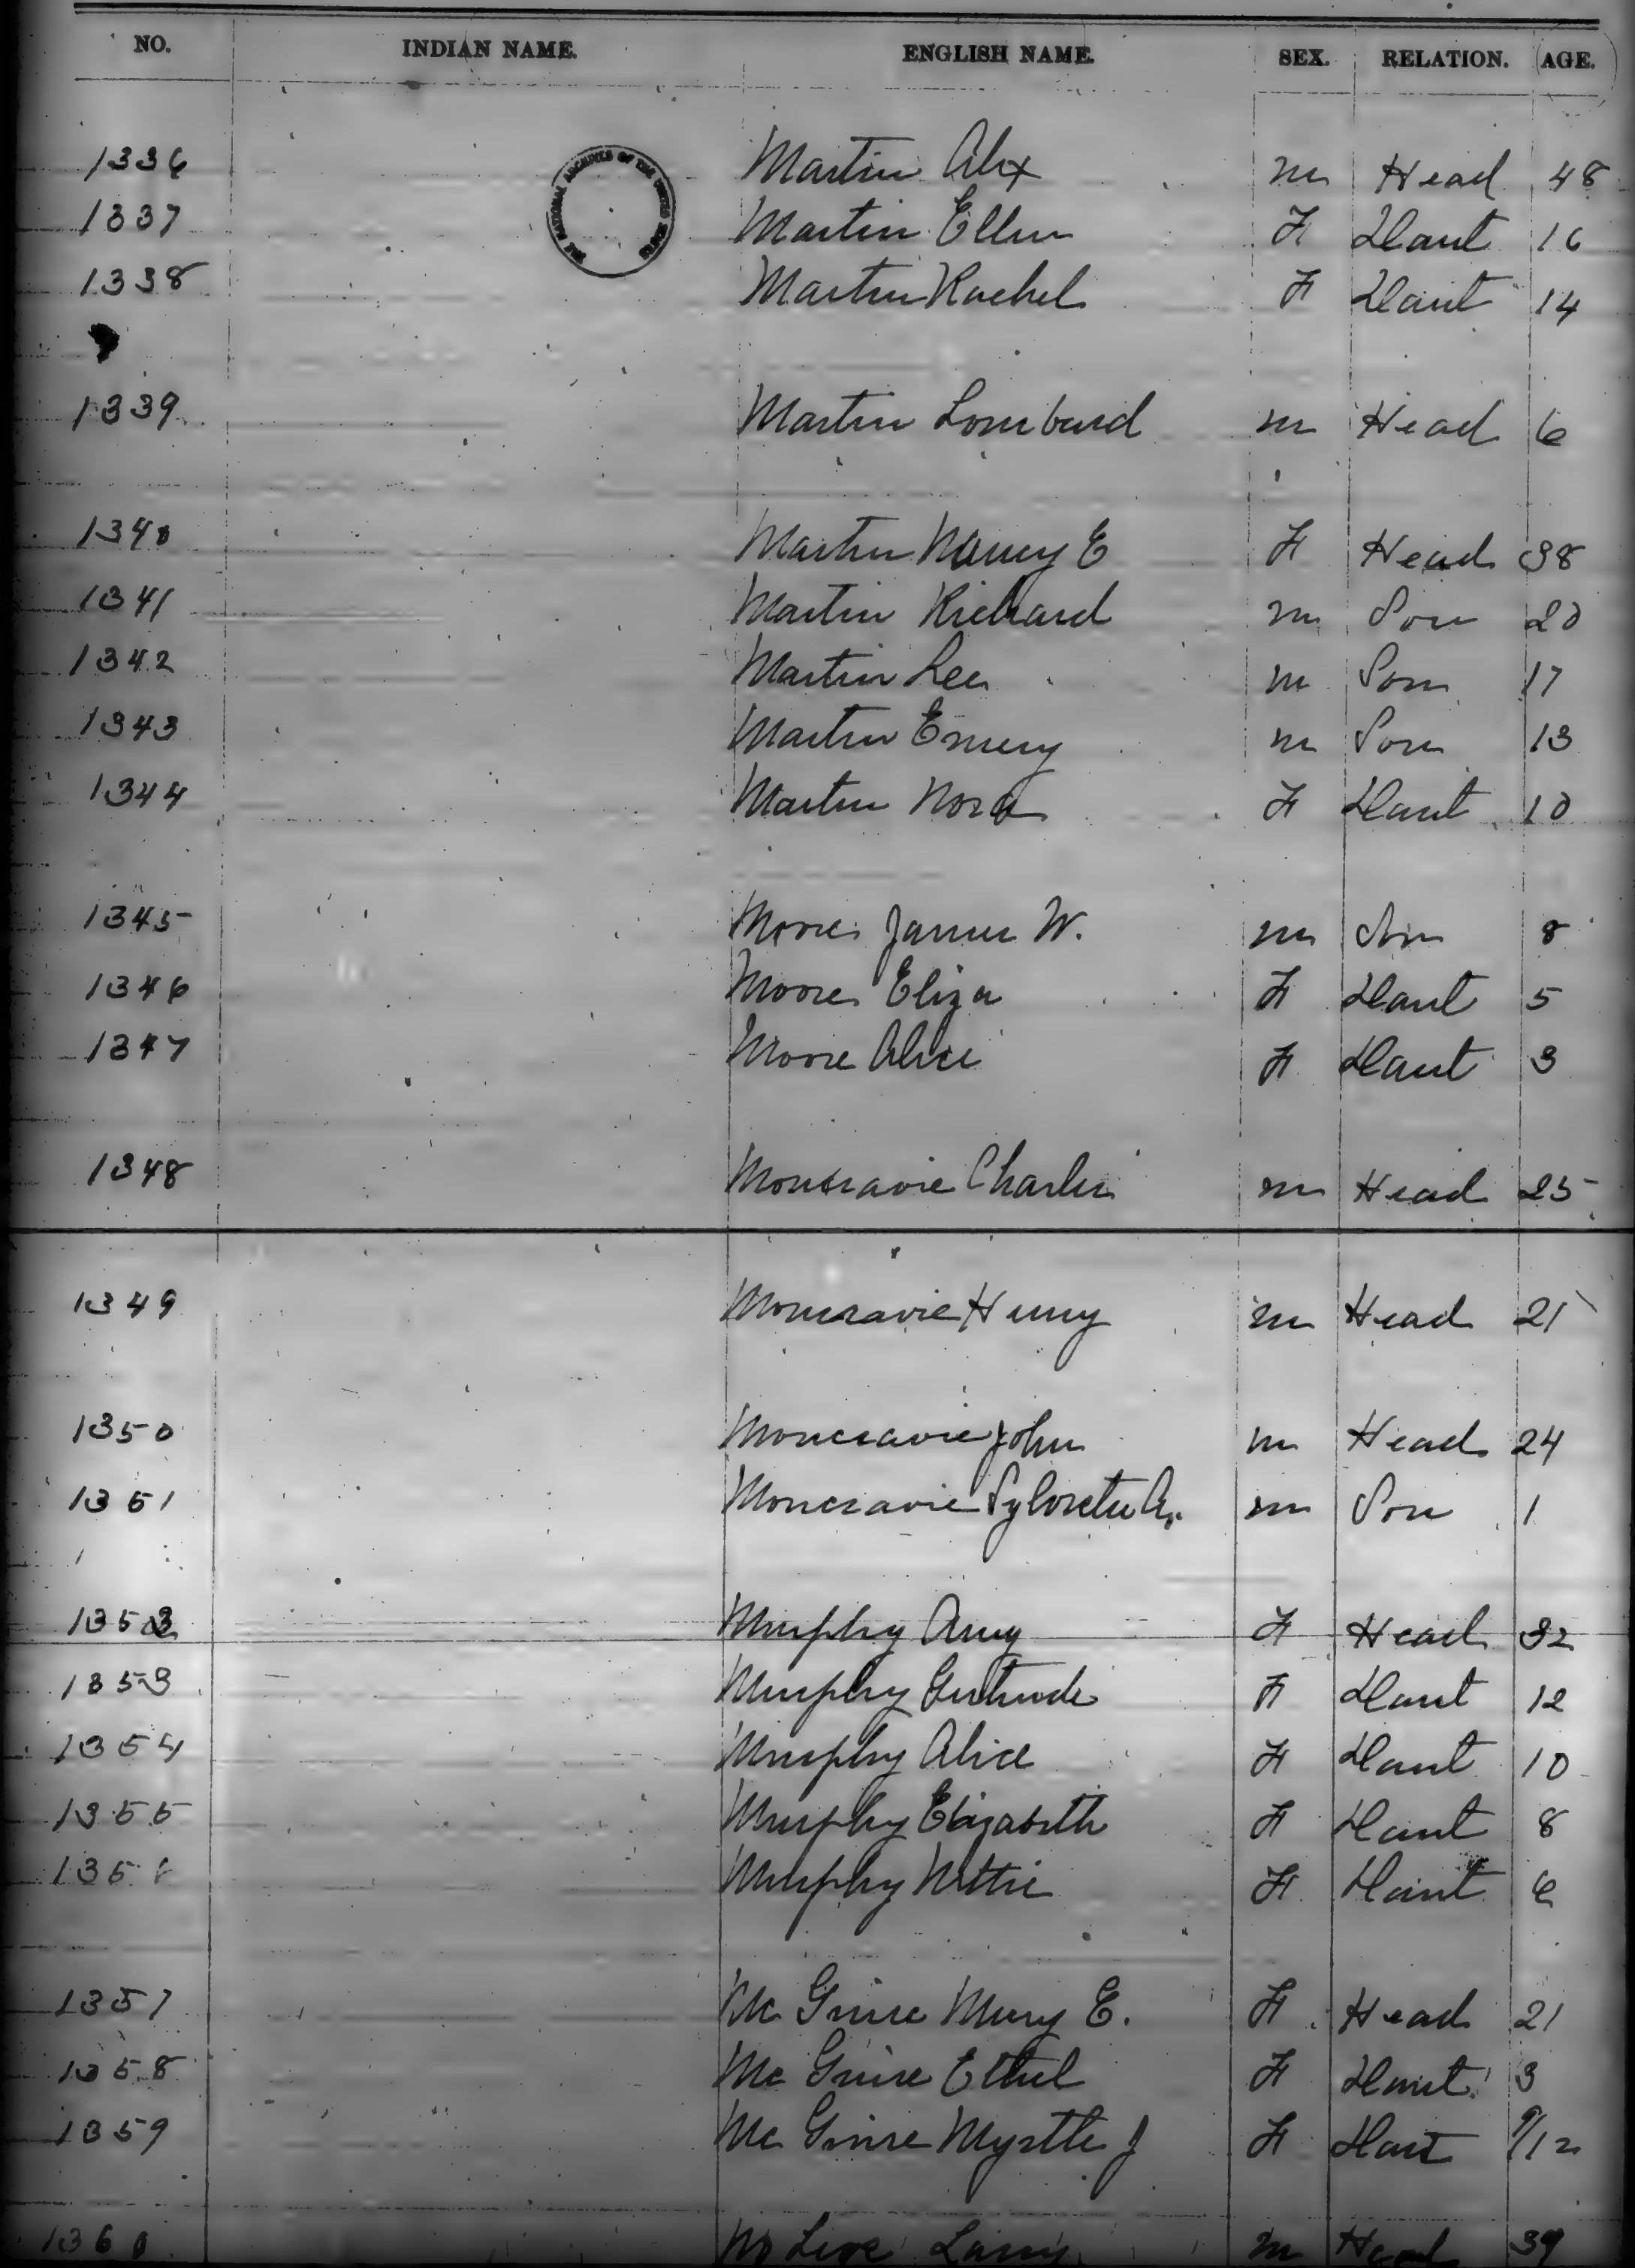 NO. INDIAN NAME. ENGLISH NAME. SEX. RELATION. AGE.
THE NATIONAL ARCHIVES OF THE UNITED STATES
1336 Martin Alex m Head 48
1337 Martin Ellen F Daut 16
1338 Martin Rachel F Daut 14
1339 Martin Lombard m Head 6
1340 Martin Nancy E F Head 38
1341 Martin Richard m Son 20
1342 Martin Lee m Son 17
1343 Martin Emery m Son 13
1344 Martin Nora F Daut 10
1345 Moore James W. m Son 8
1346 Moore Eliza F Daut 5
1347 Moore Alice F Daut 3
1348 Moncravie Charles m Head 25
1349 Moncravie Henry m Head 21
1350 Moncravie John m Head 24
1351 Moncravie A. m Son 1
1352 Murphy Amy F Head 32
1353 Murphy Gertrude F Daut 12
1354 Murphy Alice F Daut 10
1355 Murphy Elizabeth F Daut 8
1356 Murphy Nettie F Daut 6
1357 Mc Guire Mary E. F Head 21
1358 Mc Guire Ethel F Daut 3
1359 Mc Guire Myrtle J F Daut 9/12
1360 m Head 39